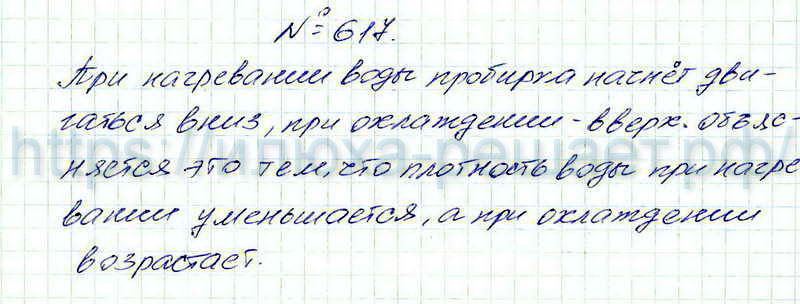 № 617.
При нагревании воды пробирка начнёт дви-
гаться вниз, при охлаждении - вверх. объяс-
няется это тем, что плотность воды при нагре
вании уменьшается, а при охлаждении
возрастает.
https://илюха-решает.рф/